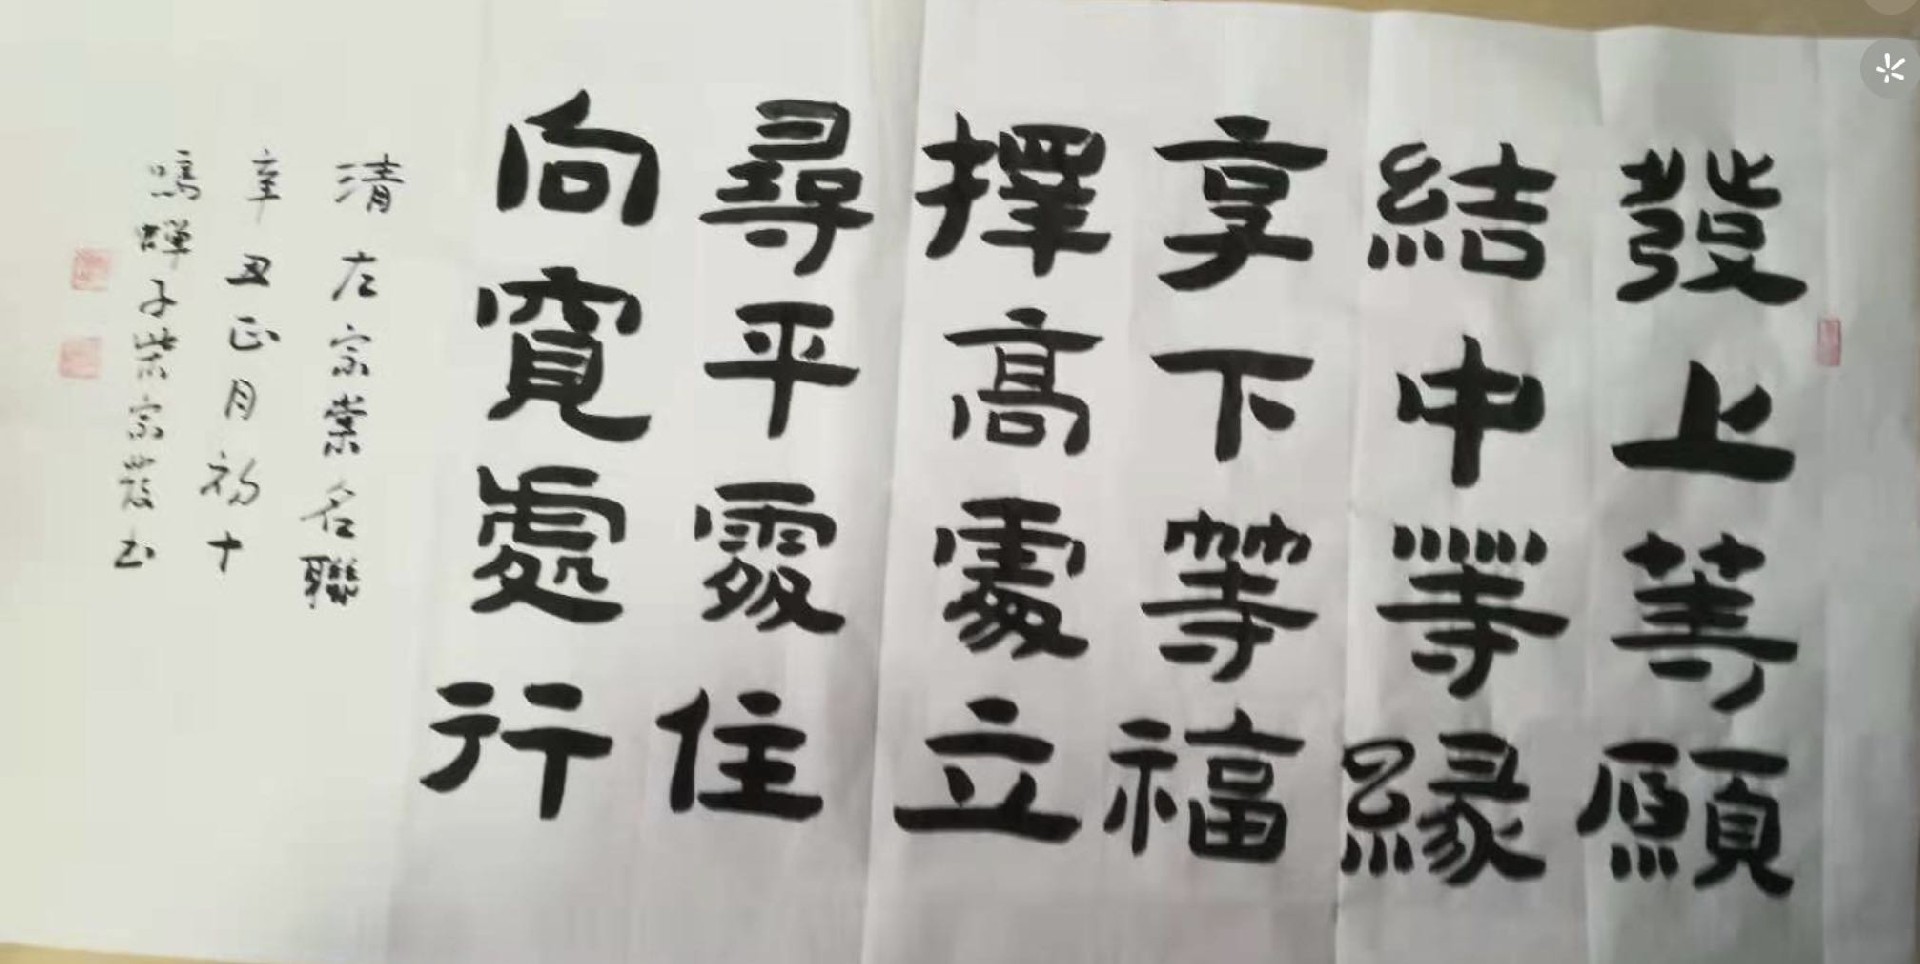 發上等願
結中等緣
享下等福
擇高處立
尋平處住
向寬處行
清左宗棠名聯
辛丑正月初十
鳴蟬子柴宗葭书